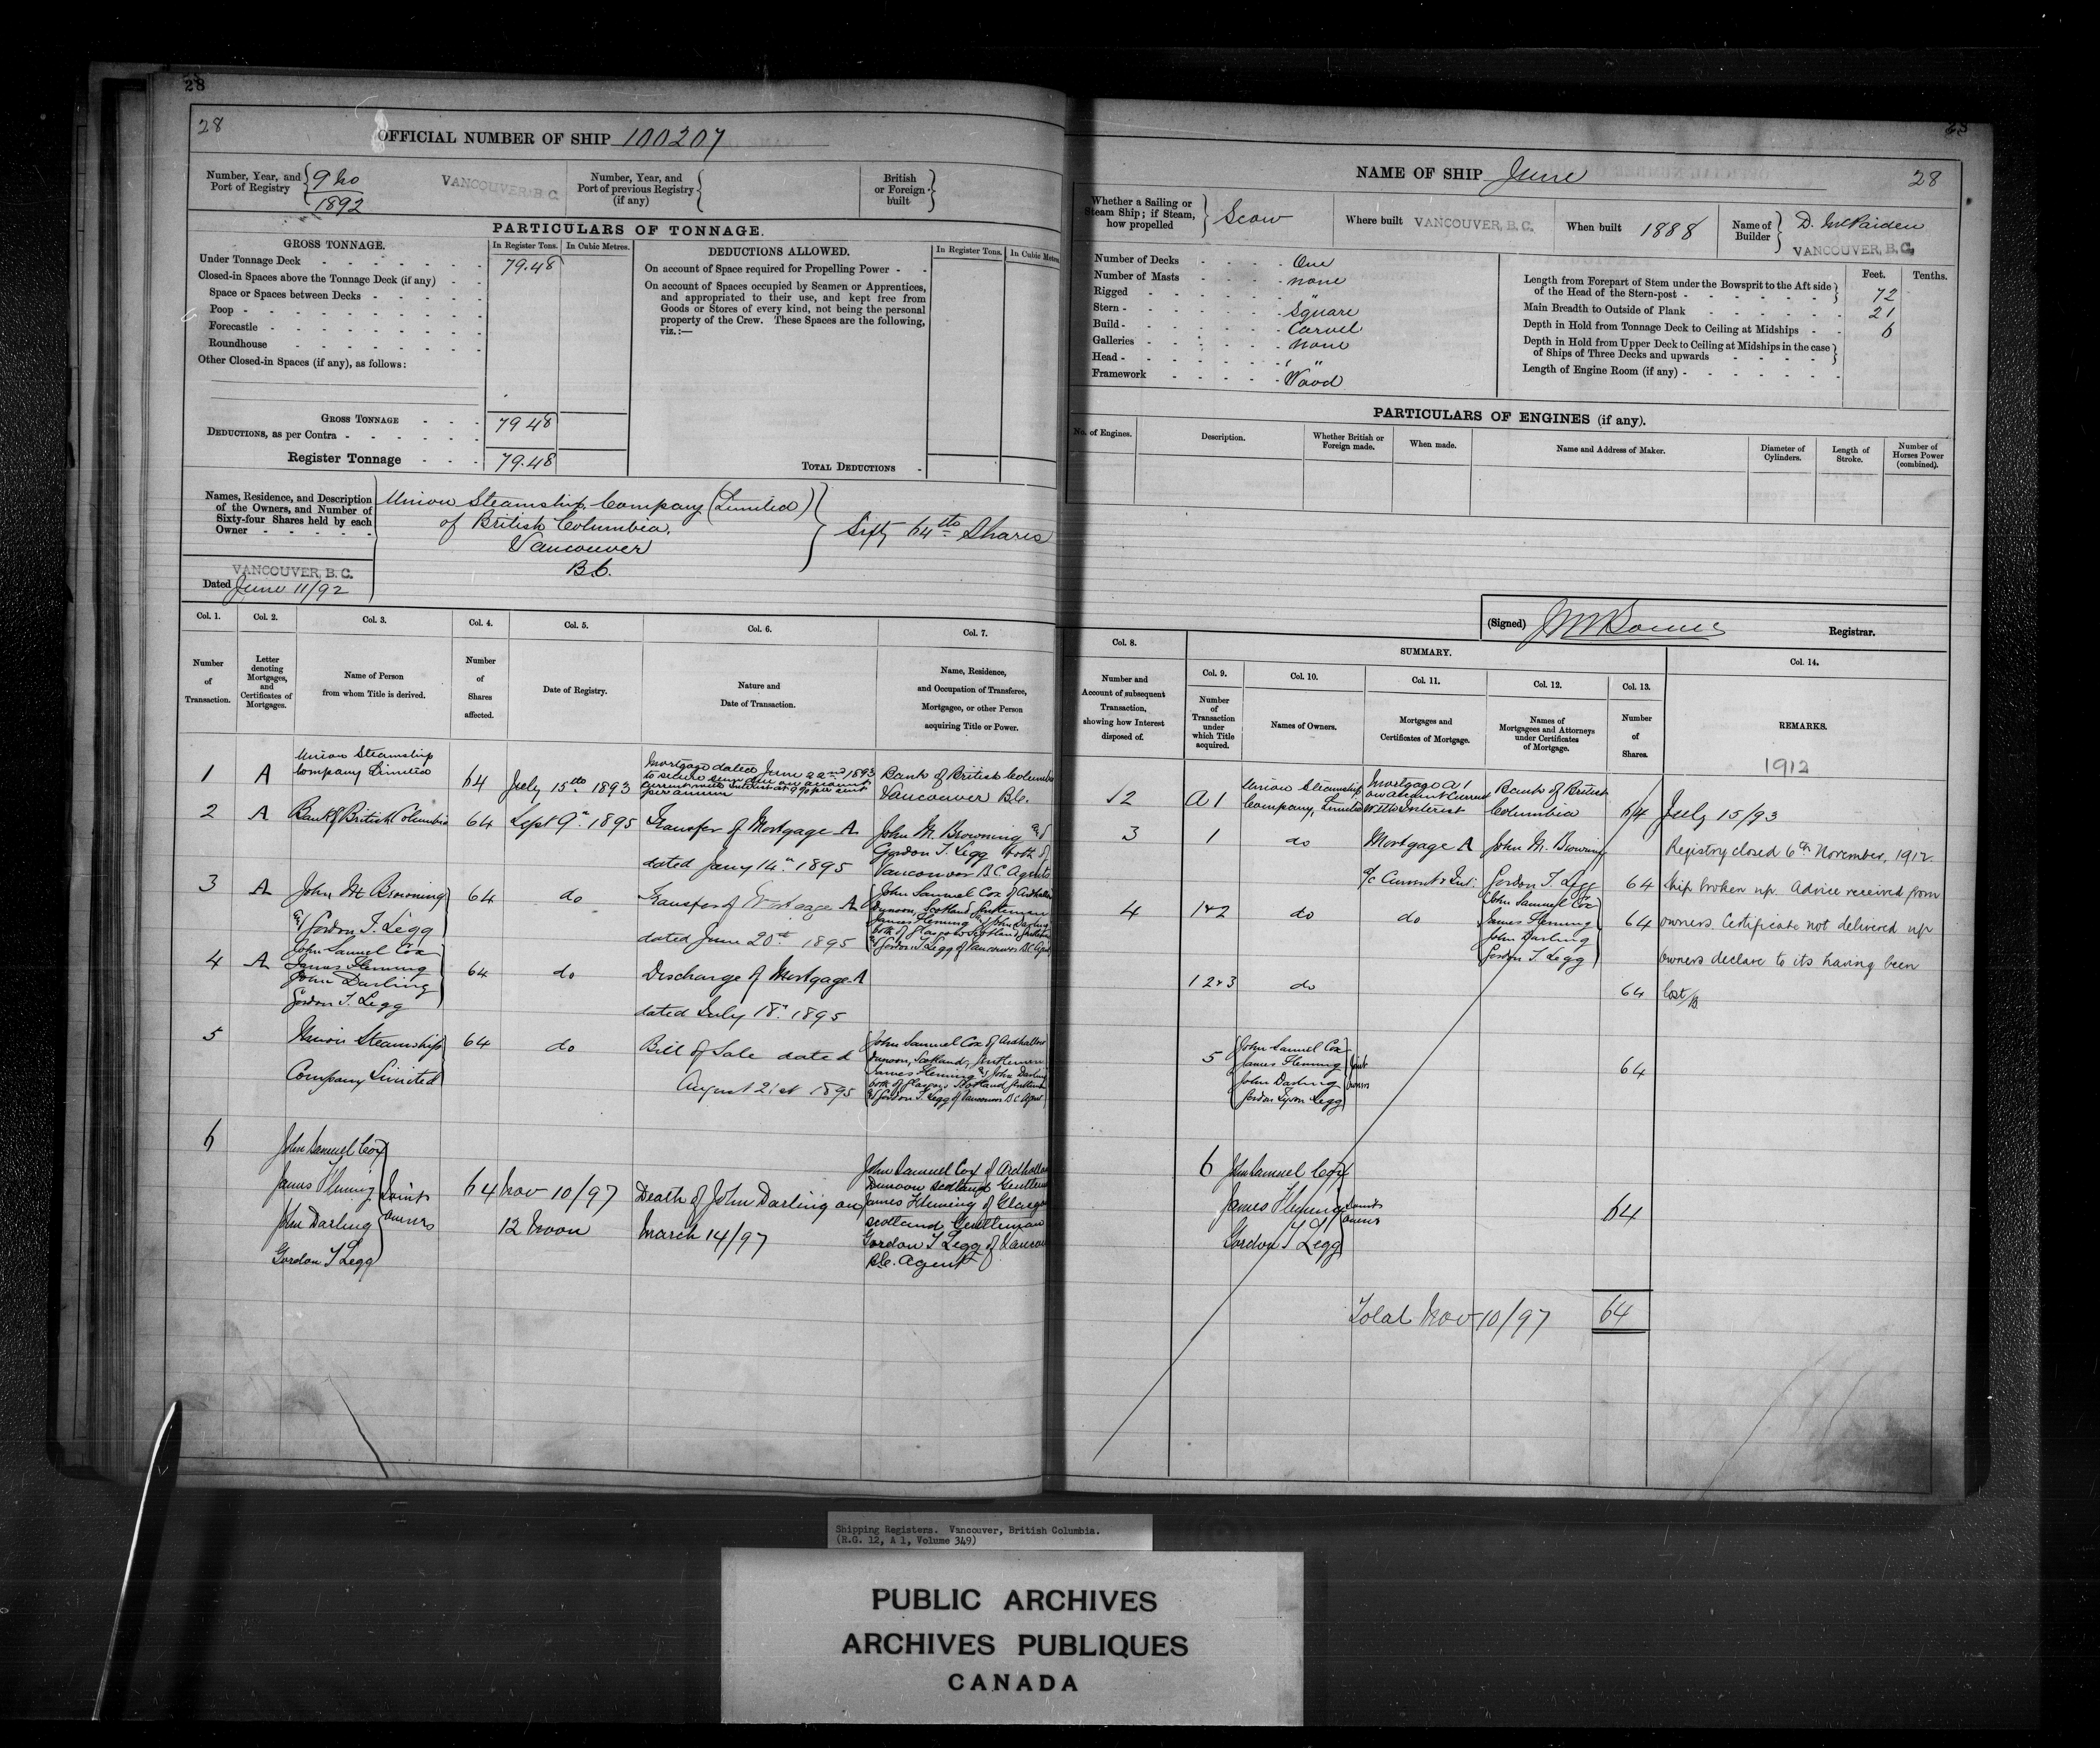 28
28
OFFICIAL NUMBER OF SHIP 100207
Number, Year, and Port of Registry
9 No
1892
VANCOUVER, B.C.
Number, Year, and Port of previous Registry (if any)
British or Foreign built
PARTICULARS OF TONNAGE.
GROSS TONNAGE.
In Register Tons.
In Cubic Metres.
Under Tonnage Deck
79.48
Closed-in Spaces above the Tonnage Deck (if any)
Space or Spaces between Decks
Poop
Forecastle
Roundhouse
Other Closed-in Spaces (if any), as follows:
GROSS TONNAGE
79 48
DEDUCTIONS, as per Contra
Register Tonnage
79.48
DEDUCTIONS ALLOWED.
In Register Tons.
In Cubic Metres
On account of Space required for Propelling Power
On account of Spaces occupied by Seamen or Apprentices,
and appropriated to their use, and kept free from
Goods or Stores of every kind, not being the personal
property of the Crew. These Spaces are the following,
viz.:—
TOTAL DEDUCTIONS
Names, Residence, and Description
of the Owners, and Number of
Sixty-four Shares held by each
Owner
Union Steamship Company (Limited)
of British Columbia,
Vancouver
B.C.
Sixty 64ths Shares
VANCOUVER, B.C.
Dated June 11/92
Col. 1.
Col. 2.
Col. 3.
Col. 4.
Col. 5.
Col. 6.
Col. 7.
Number of Transaction.
Letter denoting Mortgages, and Certificates of Mortgages.
Name of Person from whom Title is derived.
Number of Shares affected.
Date of Registry.
Nature and Date of Transaction.
Name, Residence, and Occupation of Transferee, Mortgagee, or other Person acquiring Title or Power.
1 A Union Steamship
Company Limited
64 July 15th 1893
Mortgage dated June 22nd 1893
to secure sum due on account
current with interest at 9% per cent
per annum
Bank of British Columbia
Vancouver B.C.
2 A Bank of British Columbia 64 Sept 9th 1895 Transfer of Mortgage A
dated Jany 14th 1895
John M. Browning &
Gordon T. Legg both of
Vancouver B C Agents
3 A John M. Browning
& Gordon T. Legg
64 do Transfer of Mortgage A
dated June 20th 1895
John Samuel Cox of Ardhallow
Dunoon, Scotland, Gentleman
James Fleming & John Darling
both of Glasgow Scotland Gentlemen
& Gordon T. Legg of Vancouver B.C. Agent
4 A John Samuel Cox
James Fleming
John Darling
Gordon T. Legg
64 do Discharge of Mortgage A
dated July 18th 1895
5 Union Steamship
Company Limited
64 do Bill of Sale dated
August 21st 1895
John Samuel Cox of Ardhallow
Dunoon, Scotland, Gentleman
James Fleming & John Darling
both of Glasgow Scotland Gentlemen
& Gordon T. Legg of Vancouver B C Agent
6 John Samuel Cox
James Fleming
John Darling
Gordon T Legg
Joint
Owners
64 Nov 10/97
12 Noon
Death of John Darling on
March 14/97
John Samuel Cox of Ardhallow
Dunoon Scotland Gentleman
James Fleming of Glasgow
Scotland Gentleman
Gordon T Legg of Vancouver
B.C. Agent
28
NAME OF SHIP June
28
Whether a Sailing or Steam Ship; if Steam, how propelled
Scow
Where built VANCOUVER, B.C.
When built 1888
Name of Builder
VANCOUVER, B.C.
Number of Decks One
Number of Masts none
Rigged "
Stern Square
Build Carvel
Galleries none
Head "
Framework Wood
Feet.
Tenths.
Length from Forepart of Stem under the Bowsprit to the Aft side
of the Head of the Stern-post
72
Main Breadth to Outside of Plank
21
Depth in Hold from Tonnage Deck to Ceiling at Midships
6
Depth in Hold from Upper Deck to Ceiling at Midships in the case
of Ships of Three Decks and upwards
Length of Engine Room (if any)
PARTICULARS OF ENGINES (if any).
No. of Engines.
Description.
Whether British or Foreign made.
When made.
Name and Address of Maker.
Diameter of Cylinders.
Length of Stroke.
Number of Horses Power (combined).
(Signed)
Registrar.
Col. 8.
SUMMARY.
Col. 14.
Col. 9.
Col. 10.
Col. 11.
Col. 12.
Col. 13.
Number and Account of subsequent Transaction, showing how Interest disposed of.
Number of Transaction under which Title acquired.
Names of Owners.
Mortgages and Certificates of Mortgage.
Names of Mortgagees and Attorneys under Certificates of Mortgage.
Number of Shares.
REMARKS.
1912
2 A 1 Union Steamship
Company, Limited
Mortgage A 1
on account Current
with Interest
Bank of British
Columbia
64 July 15/93
3 1 do Mortgage A
a/c Current & Int.
John M. Browning
Gordon T. Legg
64
4 1&2 do do John Samuel Cox
James Fleming
John Darling
Gordon T. Legg
64
1 2&3 do 64
5 John Samuel Cox
James Fleming
John Darling
Gordon Tyson Legg
Joint
Owners
64
6 John Samuel Cox
James Fleming
Gordon T Legg
Joint
Owners
64
Total Nov 10/97 64
Registry closed 6th November, 1912.
Ship broken up. Advice received from
owners. Certificate not delivered up
owners declare to its having been
lost
Shipping Registers. Vancouver, British Columbia.
(R.G. 12, A 1, Volume 349)
PUBLIC ARCHIVES
ARCHIVES PUBLIQUES
CANADA